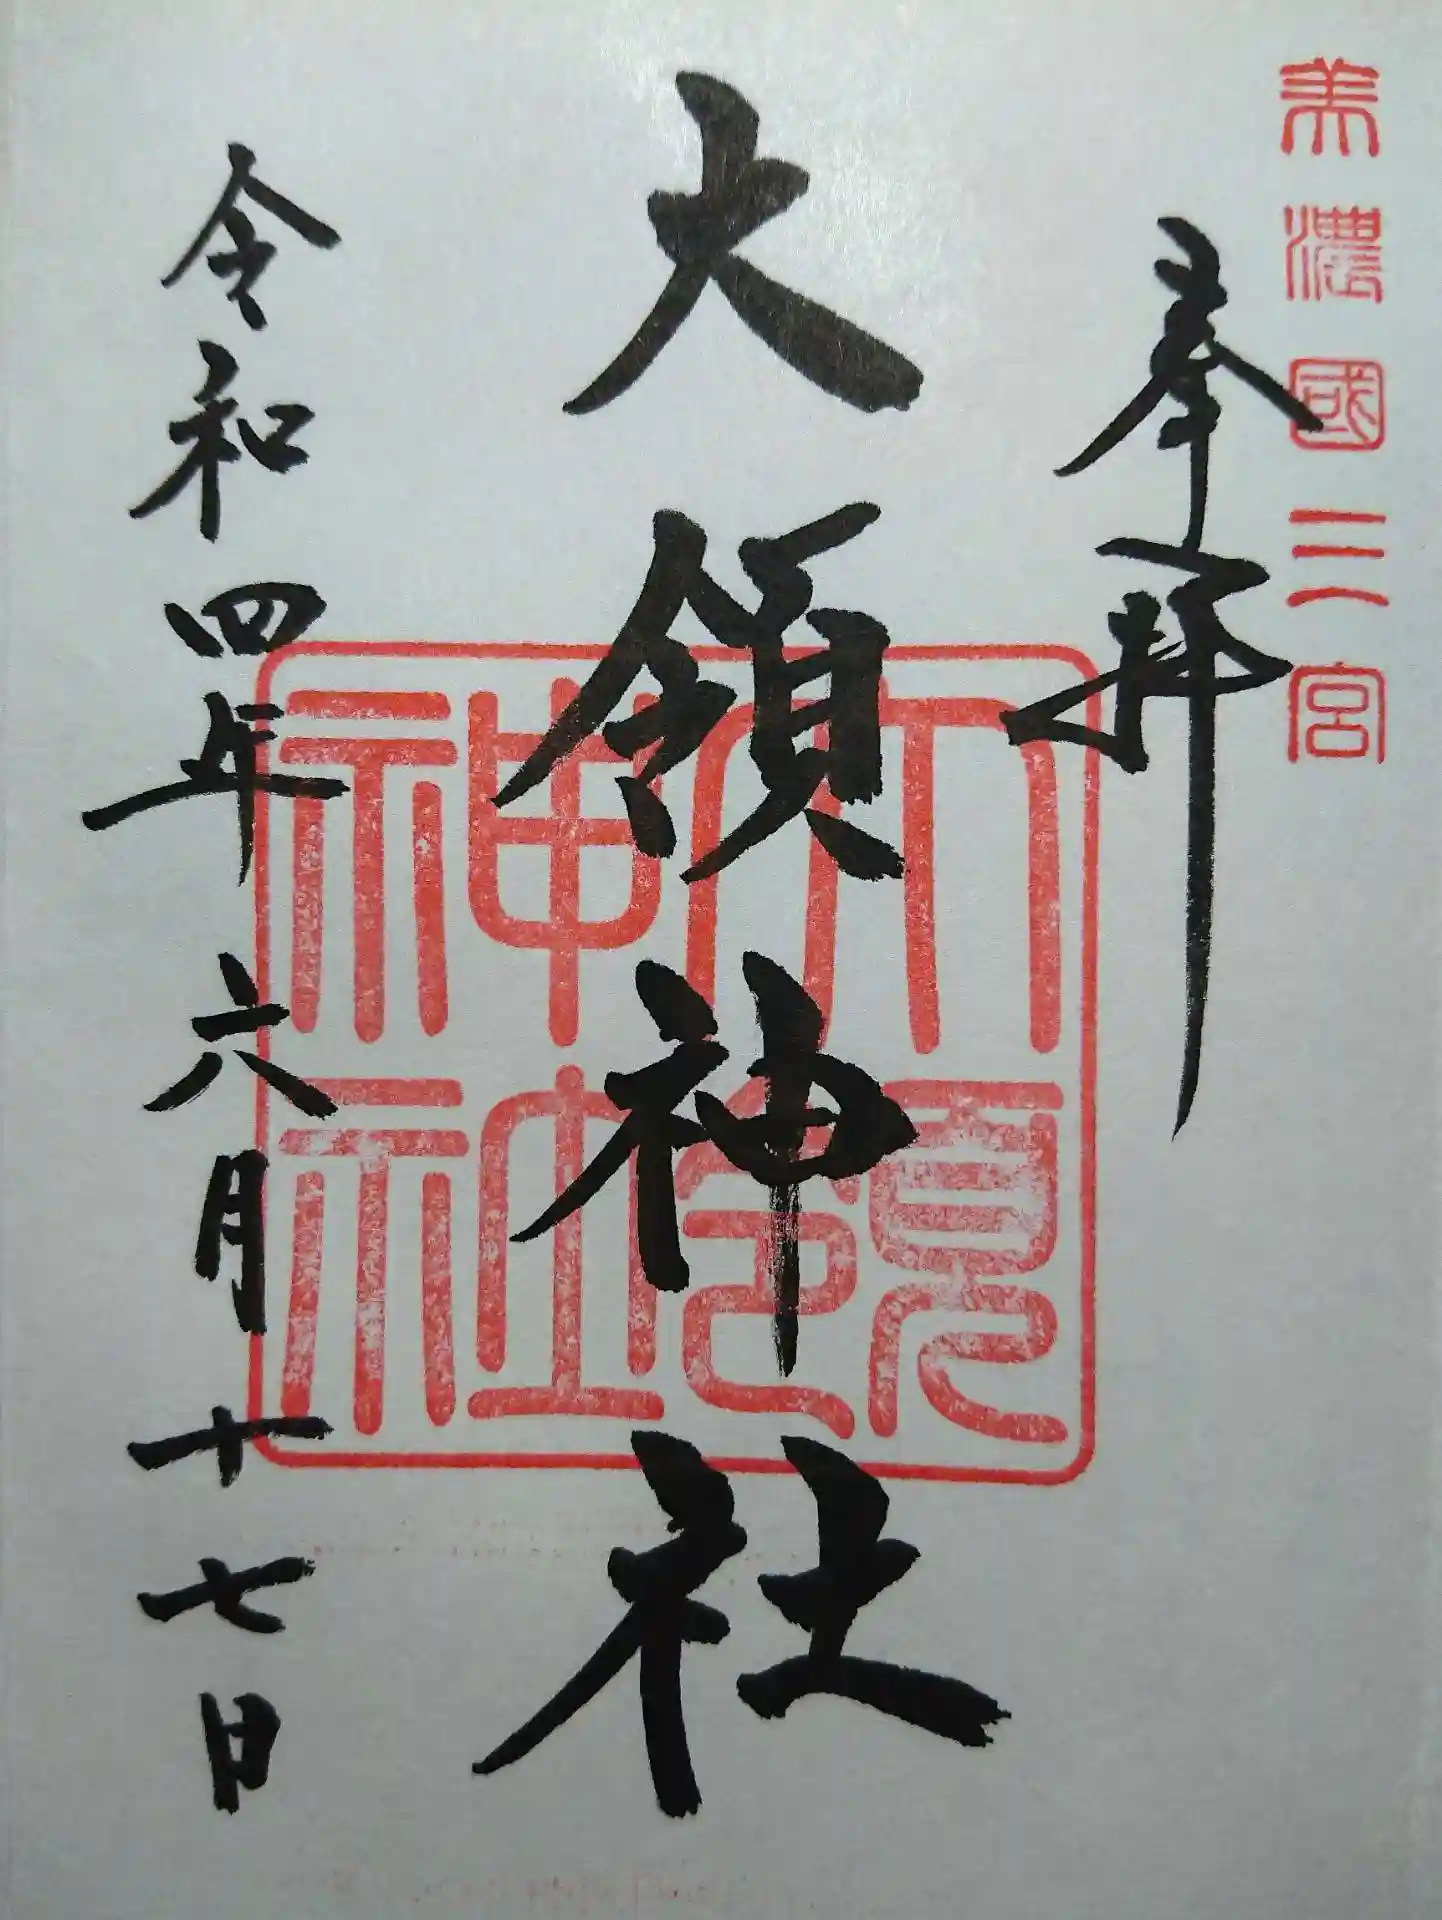 美濃國三宮
奉拝
大領神社
大領
神社
令和四年六月十七日